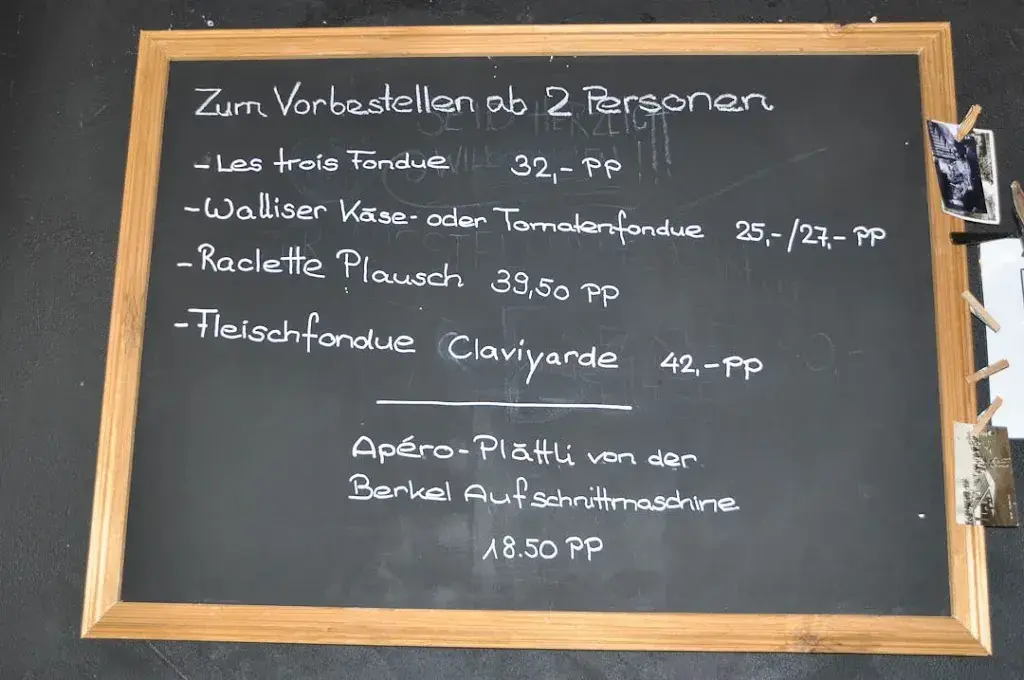 Zum Vorbestellen ab 2 Personen
- Les trois Fondue 32,- PP
- Walliser Käse- oder Tomatenfondue 25,-/27,- PP
- Raclette Plausch 39,50 PP
- Fleischfondue Claviyarde 42,- PP
Apéro-Plättli von der
Berkel Aufschnittmaschine
18.50 PP